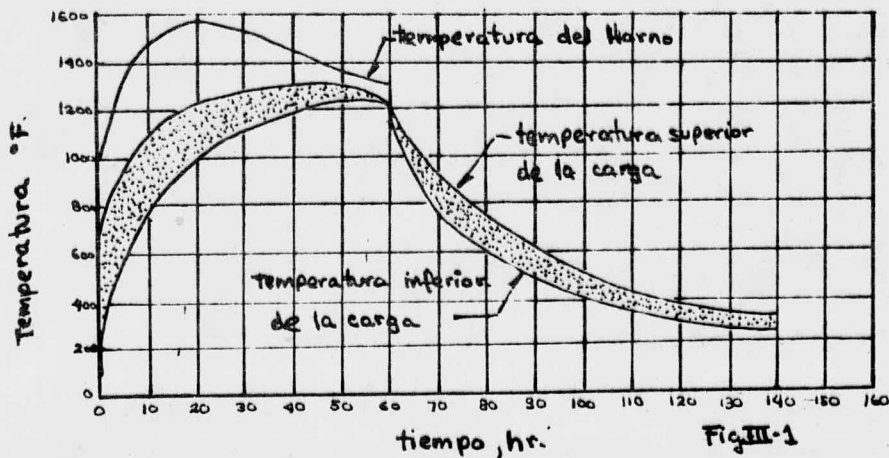 1600
1400
1200
1000
800
600
400
200
0
Temperatura °F.
temperatura del Horno
temperatura superior
de la carga
temperatura inferior
de la carga
0 10 20 30 40 50 60 70 80 90 100 110 120 130 140 150 160
tiempo, hr.
Fig III-1